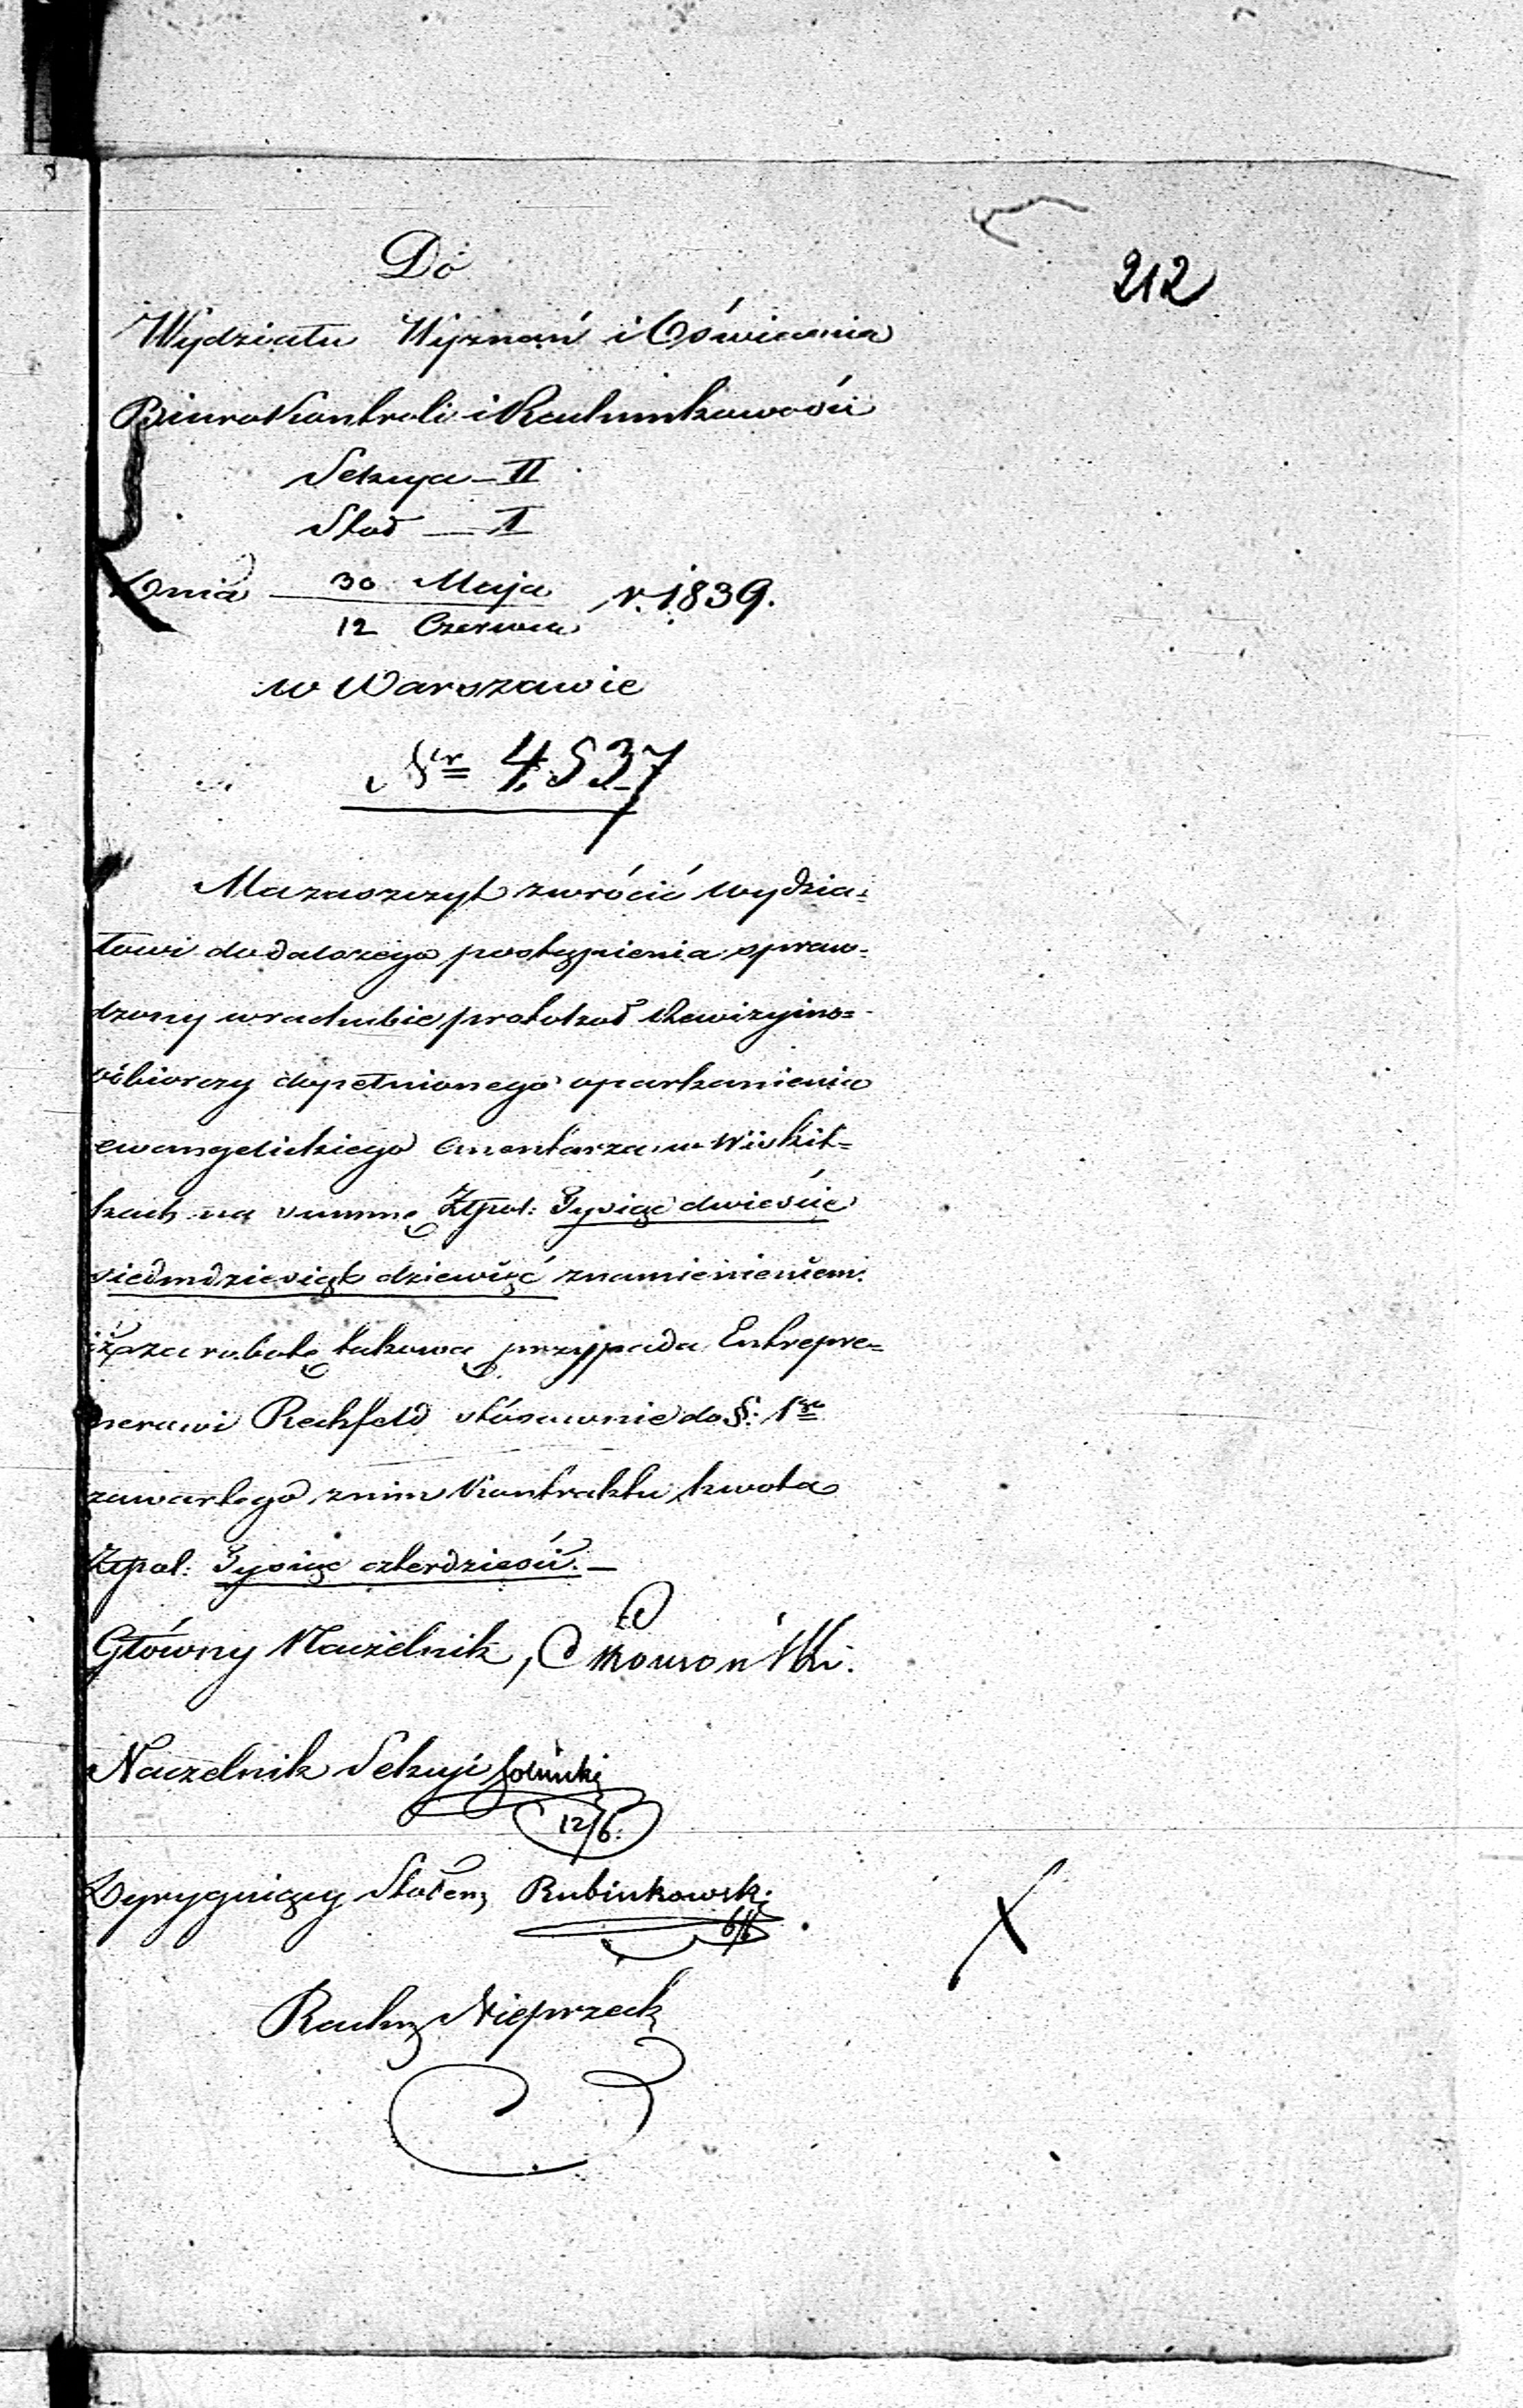 212
Do
Wydziału Wyznań i Oświecenia
Biuro Kontroli i Rachunkowości
Sekcya – II
Stoł – I
Dnia 30 Maja / 12 Czerwca r. 1839.
w Warszawie
Nr 4537
Ma zaszczyt zwrócić Wydzia=
łowi do dalszego postąpienia spraw=
dzony w rachubie protokoł Rewizyjno=
odbiorczy dopełnionego oparkanienia
ewangelickiego Cmentarza w Wiskit=
kach na summę Złpol: Tysiąc dwieście
siedmdziesiąt dziewięć z namienieniem
iż za robotę takową przypada Entrepre=
nerowi Rechfeld stósownie do §: 1go
zawartego z nim Kontraktu kwota
Złpol: Tysiąc czterdzieści. –
Główny Naczelnik,
Naczelnik Sekcyi
12/6.
Dyrygujący Stołem Rubinkowski
6/6
Rachm Nieprzeck
X